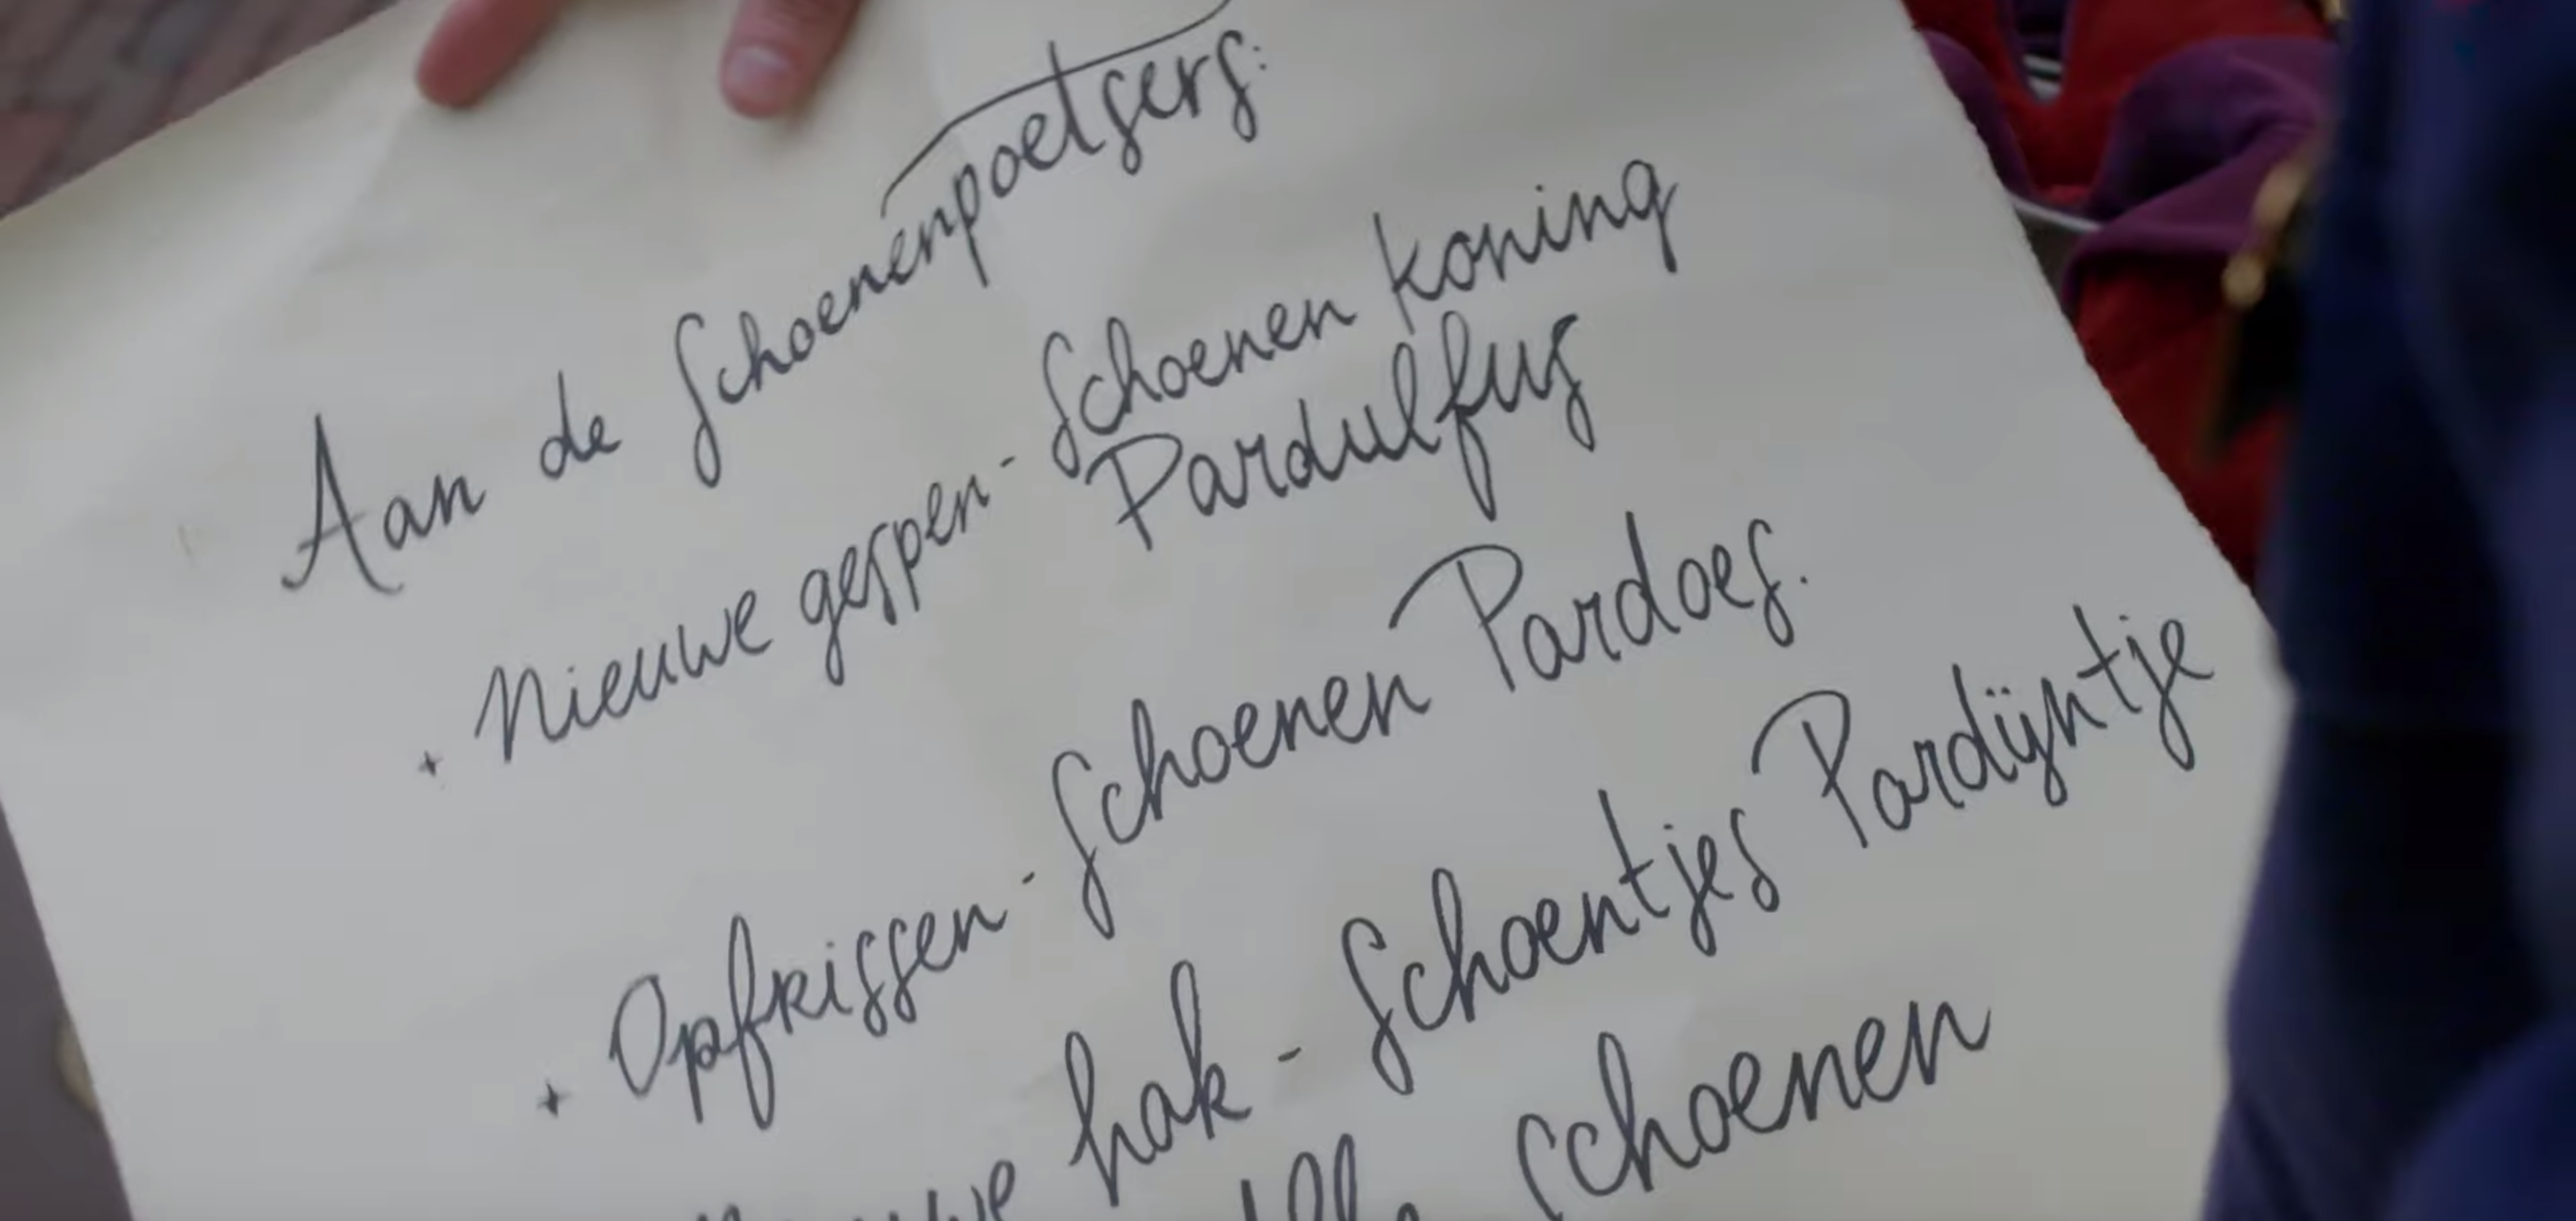 Aan de Schoenenpoetsers:
Nieuwe gespen - Schoenen koning
Pardulfus
Opfrissen - Schoenen Pardoes.
hak - Schoentjes Pardijntje
Schoenen